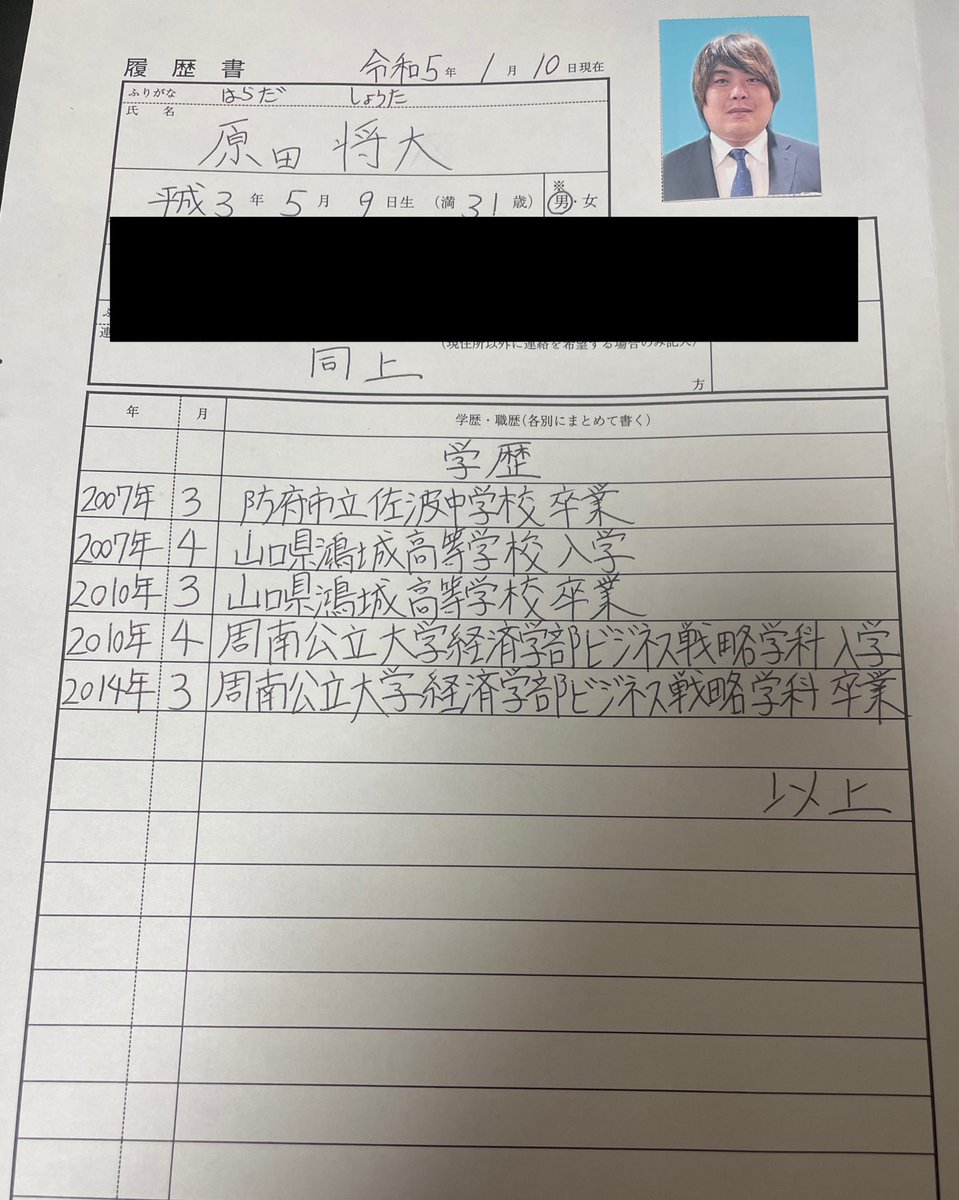 履歴書 令和5年 1月 10日現在
ふりがな はらだ しょうた
氏 名
原田 将大
平成3年 5月 9日生 (満31歳) ※男・女
連
(現住所以外に連絡を希望する場合のみ記入)
同上
方
年 月 学歴・職歴(各別にまとめて書く)
学歴
2007年 3 防府市立佐波中学校 卒業
2007年 4 山口県鴻城高等学校 入学
2010年 3 山口県鴻城高等学校 卒業
2010年 4 周南公立大学経済学部ビジネス戦略学科 入学
2014年 3 周南公立大学経済学部ビジネス戦略学科 卒業
以上